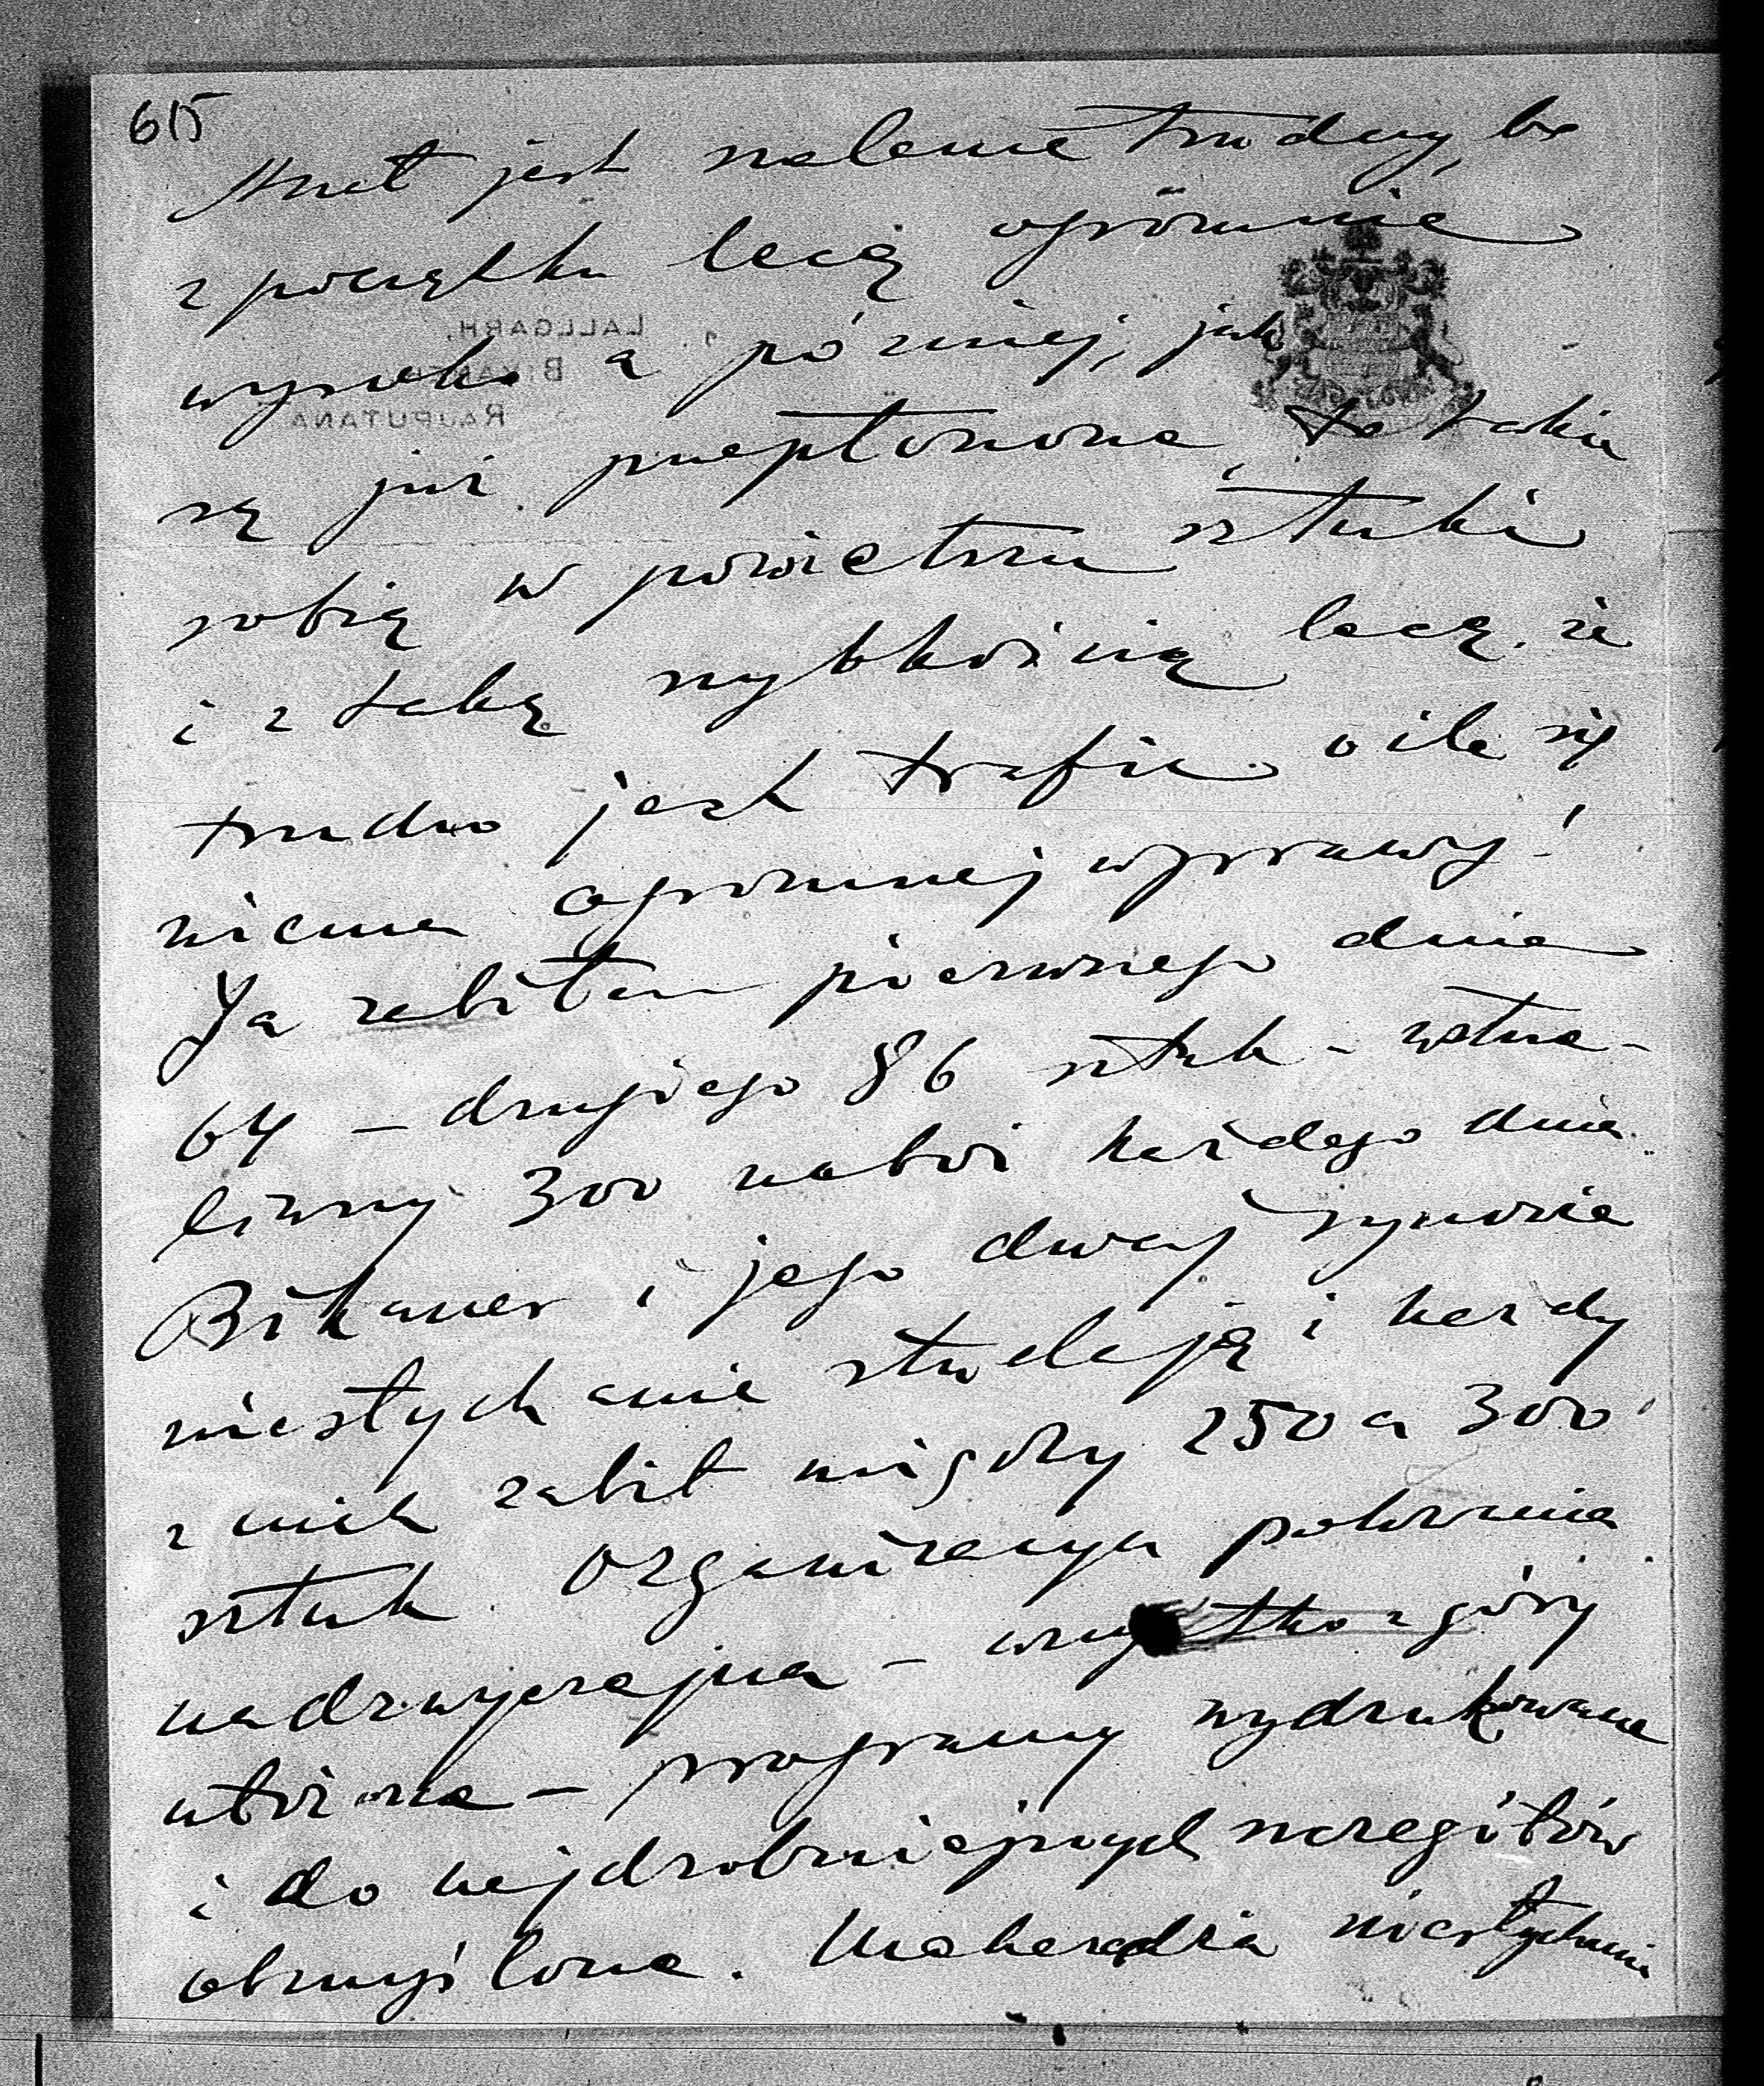 615
strzał jest szalenie trudny, bo
z początku lecą ogromnie
wysoko a później, jak
LALLGARH,
BIKANER,
RAJPUTANA
są już przepłoszone, to takie
robią w powietrzu sztuki
i z taką szybkością lecą, że
trudno jest trafić o ile się
niema ogromnej wprawy!
Ja zabiłam pierwszego dnia
64 – drugiego 86 sztuk – wystrze-
liwszy 300 naboi każdego dnia.
Bikaner i jego dwaj synowie
niesłychanie strzelają i każdy
z nich zabił między 250 a 300
sztuk. Organizacya polowania
nadzwyczajna – wszystko z góry
ułożone – programy wydrukowane
i do najdrobniejszych szczegółów
obmyślone. Maharadża niesłychanie